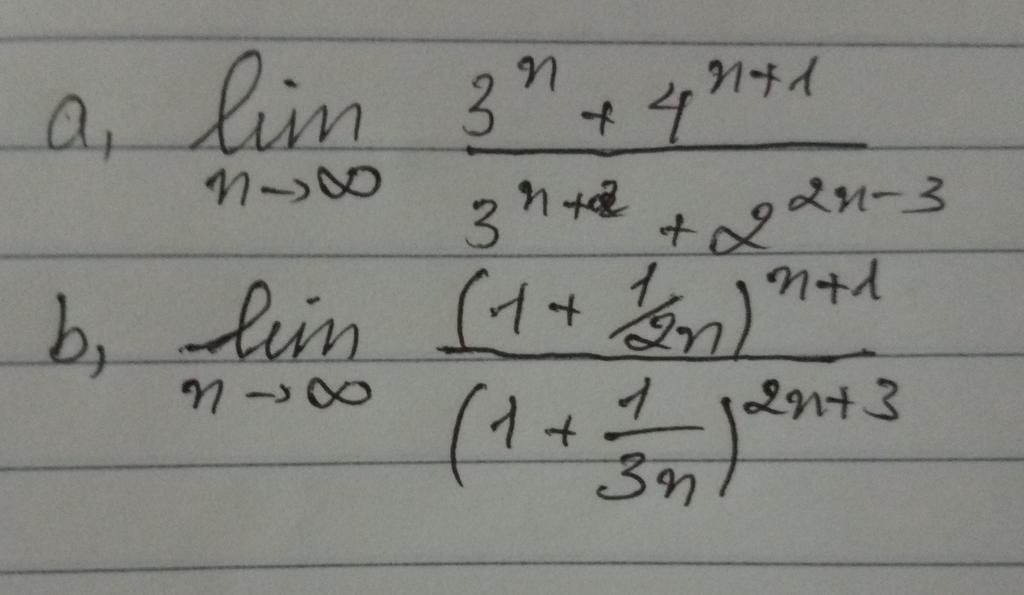 a, lim n→∞ (3^n + 4^(n+1)) / (3^(n+2) + 2^(2n-3))
b, lim n→∞ (1 + 1/2n)^(n+1) / (1 + 1/3n)^(2n+3)